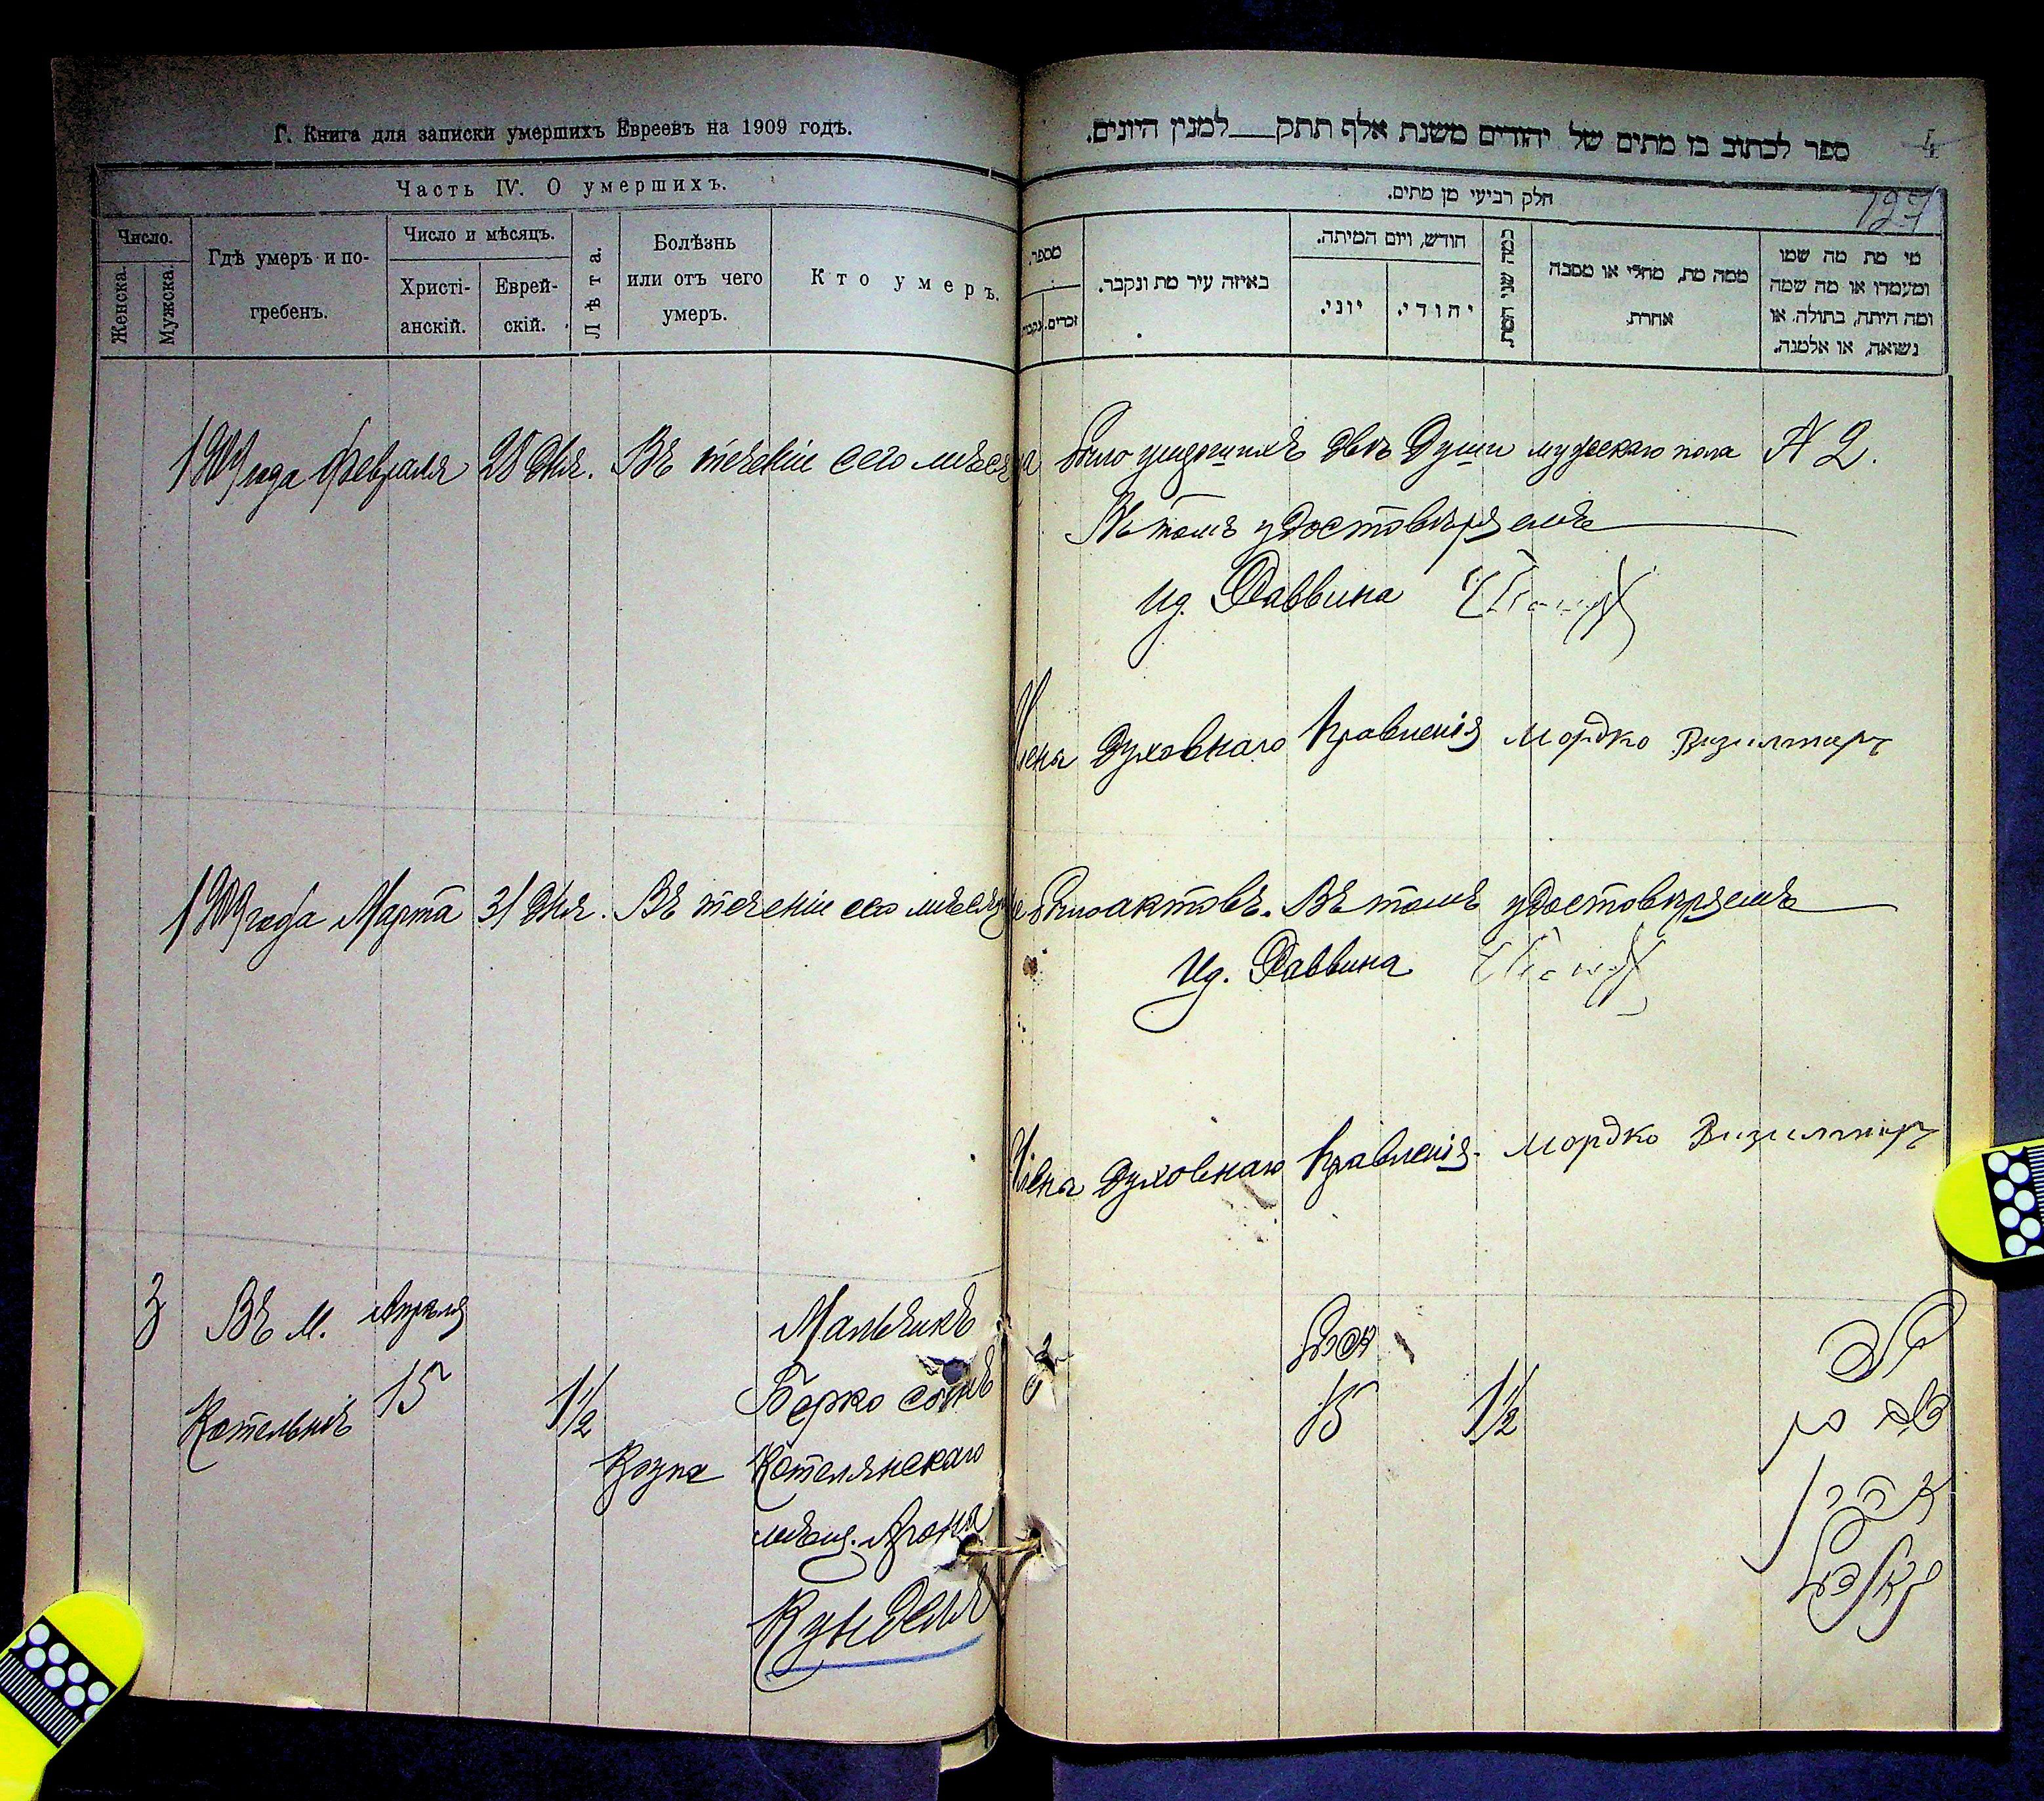 Г. Книга для записки умершихъ Евреевъ на 1909 годъ.
Часть IV. О умершихъ.
Число.
Женска.
Мужска.
Гдѣ умеръ и по-
гребенъ.
Число и мѣсяцъ.
Христі-
анскій.
Еврей-
скій.
Лѣта.
Болѣзнь
или отъ чего
умеръ.
Кто умеръ.
ספר לכתוב בו מתים של יהודים משנת אלף תתק למנין היונים.
4
127
חלק רביעי מן מתים.
מספר.
זכרים.
נקבות
באיזה עיר מת ונקבר.
חודש, ויום המיתה.
יוני.
יהודי.
כמה שני המת.
ממה מת, מחלי או מסבה
אחרת.
מי מת מה שמו
ומעמדו או מה שמה
ומה היתה, בתולה, או
נשואה, או אלמנה.
1909 года Февраля 28 дня. Въ теченіи сего мѣсяца было умершихъ двѣ души мужескаго пола № 2.
Въ томъ удостовѣряемъ
Ид. Раввина
Члена Духовнаго Правленія Мордко
1909 года Марта 31 дня. Въ теченіи сего мѣсяца было актовъ. Въ томъ удостовѣряемъ
Ид. Раввина
Члена Духовнаго Правленія Мордко
3
Въ м.
Котельнѣ
Апрѣля
15
1½
Коура
Мальчикъ
Берко сынъ
Котелянскаго
мѣщ. Арона
Кунделя
3
15
1½
ילד